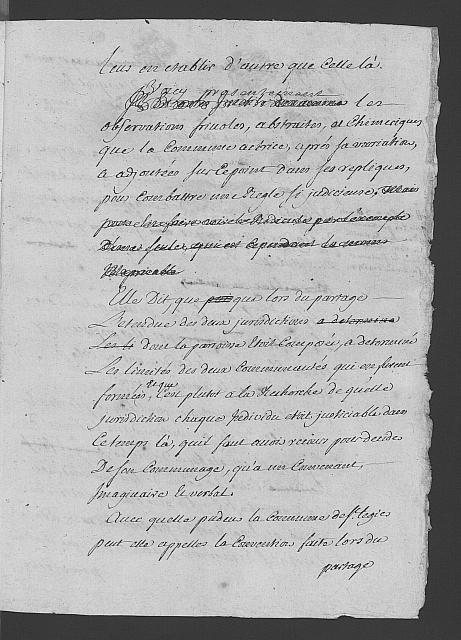 leur en etablir d'autre que celle là.
Voicy presentement les
observations frivoles, abstraites, et Chimeriques
que la Commune actrice, après sa variation,
a adjoutées sur ce point dans ses repliques,
pour combattre une Regle si judicieuse,
Elle Dit, que que lors du partage
L'etendue des deux jurisdictions
dont la parroisse Etoit Composée, a determiné
Les limites des deux Communautés qui en furent
formées, que c'est plutot a la Recherche de quelle
jurisdiction chaque Individu etoit justiciable dans
Ce temps là, qu'il faut avoir recours pour decider
De son Communage, qu'a un Convenant,
Imaginaire et verbal.
Avec quelle pudeur la Commune de St. legier
peut elle appeller la Convention faite lors du
partage